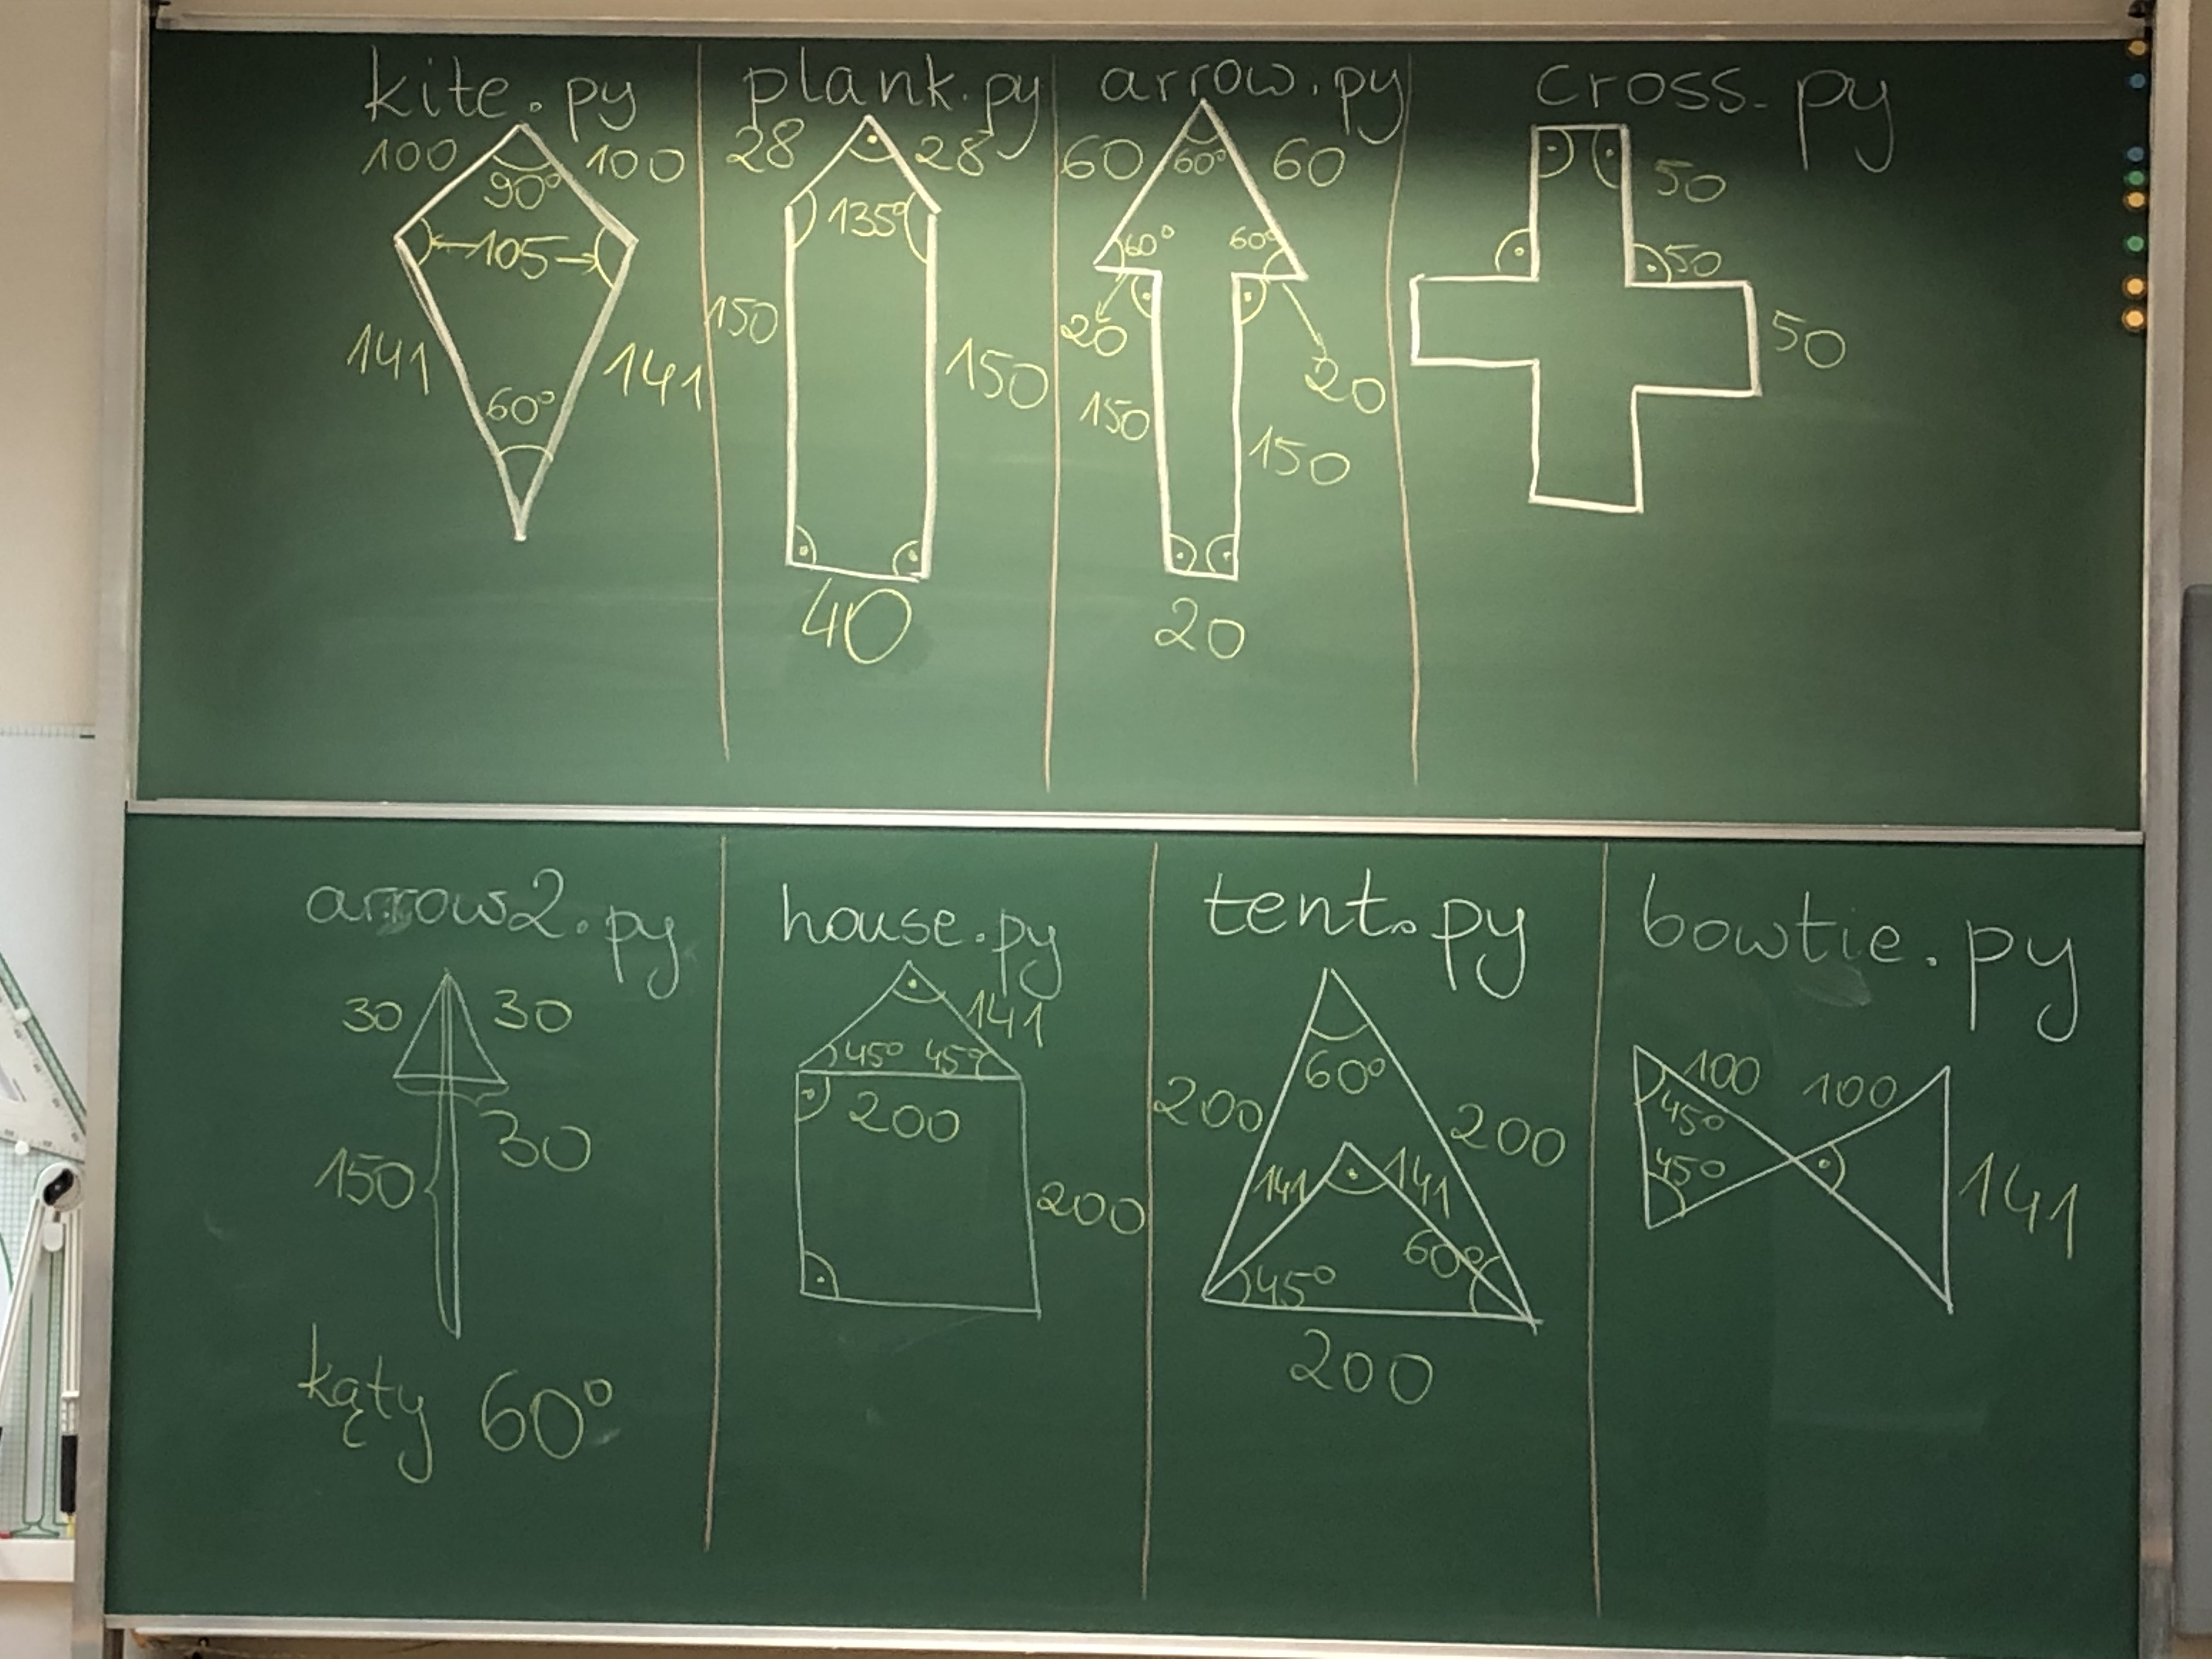 kite.py
100 100
90°
105
141 141
60°
plank.py
28 28
135°
150 150
40
arrow.py
60 60° 60
60° 60°
20 20
150 150
20
cross.py
50
50
50
arrow2.py
30 30
30
150
kąty 60°
house.py
141
45° 45°
200
200
tent.py
60°
200 200
141 141
45° 60°
200
bowtie.py
100 100
45°
45°
141